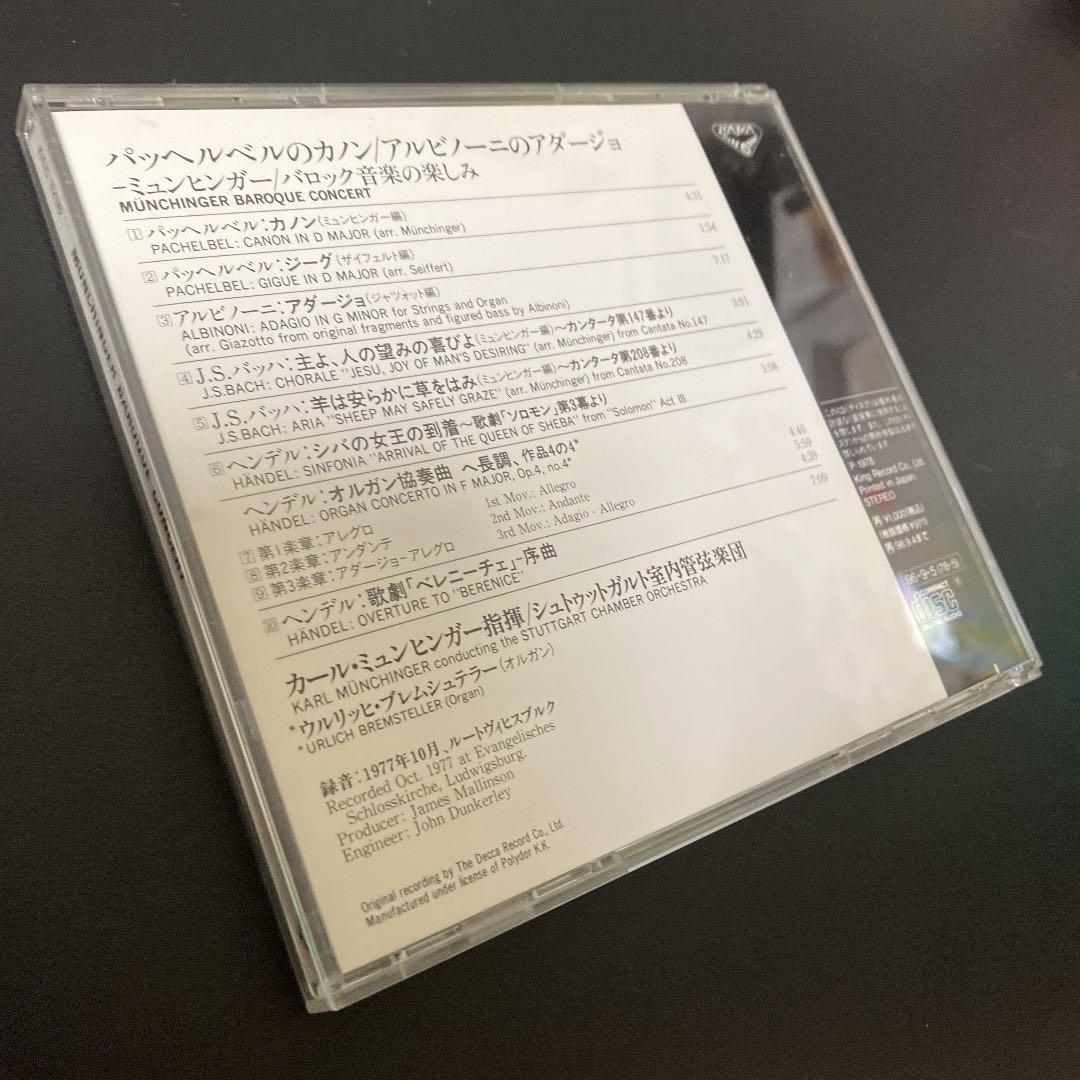 パッヘルベルのカノン/アルビノーニのアダージョ
−ミュンヒンガー/バロック音楽の楽しみ
MÜNCHINGER BAROQUE CONCERT
1 パッヘルベル:カノン(ミュンヒンガー編) 4:31
PACHELBEL: CANON IN D MAJOR (arr. Münchinger)
2 パッヘルベル:ジーグ(ザイフェルト編) 1:54
PACHELBEL: GIGUE IN D MAJOR (arr. Seiffert)
3 アルビノーニ:アダージョ(ジャツォット編) 7:17
ALBINONI: ADAGIO IN G MINOR for Strings and Organ
(arr. Giazotto from original fragments and figured bass by Albinoni)
4 J.S.バッハ:主よ、人の望みの喜びよ(ミュンヒンガー編)〜カンタータ第147番より 3:01
J.S.BACH: CHORALE "JESU, JOY OF MAN'S DESIRING" (arr. Münchinger) from Cantata No.147
5 J.S.バッハ:羊は安らかに草をはみ(ミュンヒンガー編)〜カンタータ第208番より 4:29
J.S.BACH: ARIA "SHEEP MAY SAFELY GRAZE" (arr. Münchinger) from Cantata No.208
6 ヘンデル:シバの女王の到着〜歌劇「ソロモン」第3幕より 3:08
HÄNDEL: SINFONIA "ARRIVAL OF THE QUEEN OF SHEBA" from "Solomon" Act III
ヘンデル:オルガン協奏曲 ヘ長調、作品4の4*
HÄNDEL: ORGAN CONCERTO IN F MAJOR, Op.4, no.4*
7 第1楽章:アレグロ 1st Mov.: Allegro 4:40
8 第2楽章:アンダンテ 2nd Mov.: Andante 5:59
9 第3楽章:アダージョーアレグロ 3rd Mov.: Adagio - Allegro 4:39
10 ヘンデル:歌劇「ベレニーチェ」−序曲 7:09
HÄNDEL: OVERTURE TO "BERENICE"
カール・ミュンヒンガー指揮/シュトゥットガルト室内管弦楽団
KARL MÜNCHINGER conducting the STUTTGART CHAMBER ORCHESTRA
*ウルリッヒ・ブレムシュテラー(オルガン)
*URLICH BREMSTELLER (Organ)
録音:1977年10月、ルートヴィヒスブルク
Recorded Oct. 1977 at Evangelisches
Schlosskirche, Ludwigsburg.
Producer: James Mallinson
Engineer: John Dunkerley
Original recording by The Decca Record Co., Ltd.
Manufactured under license of Polydor K.K.
P 1978
King Record Co., Ltd.
Printed in Japan.
STEREO
¥1,000(税込)
(税抜価格¥971)
98.9.4まで
96・9・5(78・5)
COMPACT
disc
DIGITAL AUDIO
MÜNCHINGER BAROQUE